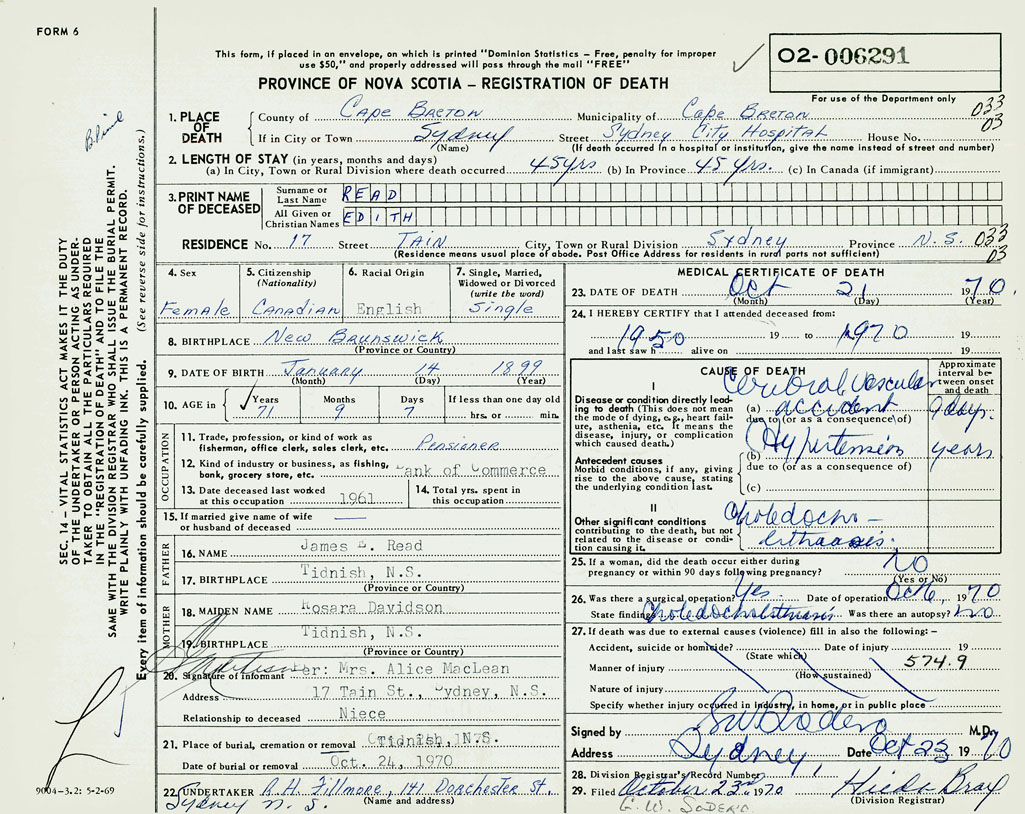 FORM 6
This form, if placed in an envelope, on which is printed "Dominion Statistics – Free, penalty for improper
use $50," and properly addressed will pass through the mail "FREE"
O2-006291
PROVINCE OF NOVA SCOTIA – REGISTRATION OF DEATH
For use of the Department only
033
03
1. PLACE OF DEATH
County of Cape Breton Municipality of Cape Breton
If in City or Town Sydney Street Sydney City Hospital House No.
(Name) (If death occurred in a hospital or institution, give the name instead of street and number)
2. LENGTH OF STAY (in years, months and days)
(a) In City, Town or Rural Division where death occurred 45 yrs (b) In Province 45 yrs. (c) In Canada (if immigrant)
3. PRINT NAME OF DECEASED
Surname or Last Name READ
All Given or Christian Names EDITH
RESIDENCE No. 17 Street TAIN City, Town or Rural Division Sydney Province N.S. 033
03
(Residence means usual place of abode. Post Office Address for residents in rural parts not sufficient)
SEC. 14 – VITAL STATISTICS ACT MAKES IT THE DUTY
OF THE UNDERTAKER OR PERSON ACTING AS UNDER-
TAKER TO OBTAIN ALL THE PARTICULARS REQUIRED
IN THE "REGISTRATION OF DEATH" AND TO FILE THE
SAME WITH THE DIVISION REGISTRAR WHO SHALL ISSUE THE BURIAL PERMIT.
WRITE PLAINLY WITH UNFADING INK. THIS IS A PERMANENT RECORD.
Every item of information should be carefully supplied. (See reverse side for instructions.)
4. Sex
Female
5. Citizenship
(Nationality)
Canadian
6. Racial Origin
English
7. Single, Married,
Widowed or Divorced
(write the word)
Single
8. BIRTHPLACE New Brunswick
(Province or Country)
9. DATE OF BIRTH January 14 1899
(Month) (Day) (Year)
10. AGE in Years 71 Months 9 Days 7 If less than one day old
hrs. or min.
OCCUPATION
11. Trade, profession, or kind of work as
fisherman, office clerk, sales clerk, etc. Pensioner
12. Kind of industry or business, as fishing,
bank, grocery store, etc. Bank of Commerce
13. Date deceased last worked
at this occupation 1961
14. Total yrs. spent in
this occupation
15. If married give name of wife
or husband of deceased —
FATHER
16. NAME James E. Read
17. BIRTHPLACE Tidnish, N.S.
(Province or Country)
MOTHER
18. MAIDEN NAME Rosara Davidson
19. BIRTHPLACE Tidnish, N.S.
(Province or Country)
20. Signature of informant er: Mrs. Alice MacLean
Address 17 Tain St., Sydney, N.S.
Relationship to deceased Niece
21. Place of burial, cremation or removal Tidnish, N.S.
Date of burial or removal Oct. 24, 1970
22. UNDERTAKER R.H. Fillmore, 141 Dorchester St.,
Sydney N.S. (Name and address)
9004-3.2: 5-2-69
MEDICAL CERTIFICATE OF DEATH
23. DATE OF DEATH Oct 21 1970
(Month) (Day) (Year)
24. I HEREBY CERTIFY that I attended deceased from:
1950 19 to 1970 19
and last saw h alive on 19
CAUSE OF DEATH
Approximate
interval be-
tween onset
and death
I
Disease or condition directly lead-
ing to death (This does not mean
the mode of dying, e.g., heart fail-
ure, asthenia, etc. It means the
disease, injury, or complication
which caused death.)
Cerebral Vascular
(a) accident 9 days.
due to (or as a consequence of)
Antecedent causes
Morbid conditions, if any, giving
rise to the above cause, stating
the underlying condition last.
(b) Hypertension years
due to (or as a consequence of)
(c)
II
Other significant conditions
contributing to the death, but not
related to the disease or condi-
tion causing it.
Choledocho –
lithiasis.
25. If a woman, did the death occur either during
pregnancy or within 90 days following pregnancy? no
(Yes or No)
26. Was there a surgical operation? Yes. Date of operation Oct 6, 1970
State finding Choledocholithiasis Was there an autopsy? no
27. If death was due to external causes (violence) fill in also the following: –
Accident, suicide or homicide? Date of injury 19
(State which)
Manner of injury 574.9
(How sustained)
Nature of injury
Specify whether injury occurred in industry, in home, or in public place
Signed by GW Sodero M.D.
Address Sydney Date Oct 23 1970
28. Division Registrar's Record Number
29. Filed October 23rd 1970 Hilda Bray
G. W. SODERO (Division Registrar)